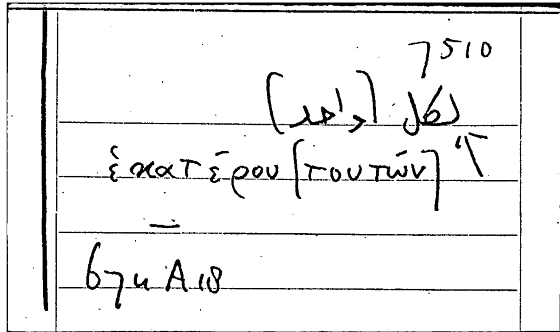 7510
لكل (واحد)
ἑκατέρου [τουτών]
674 A 18